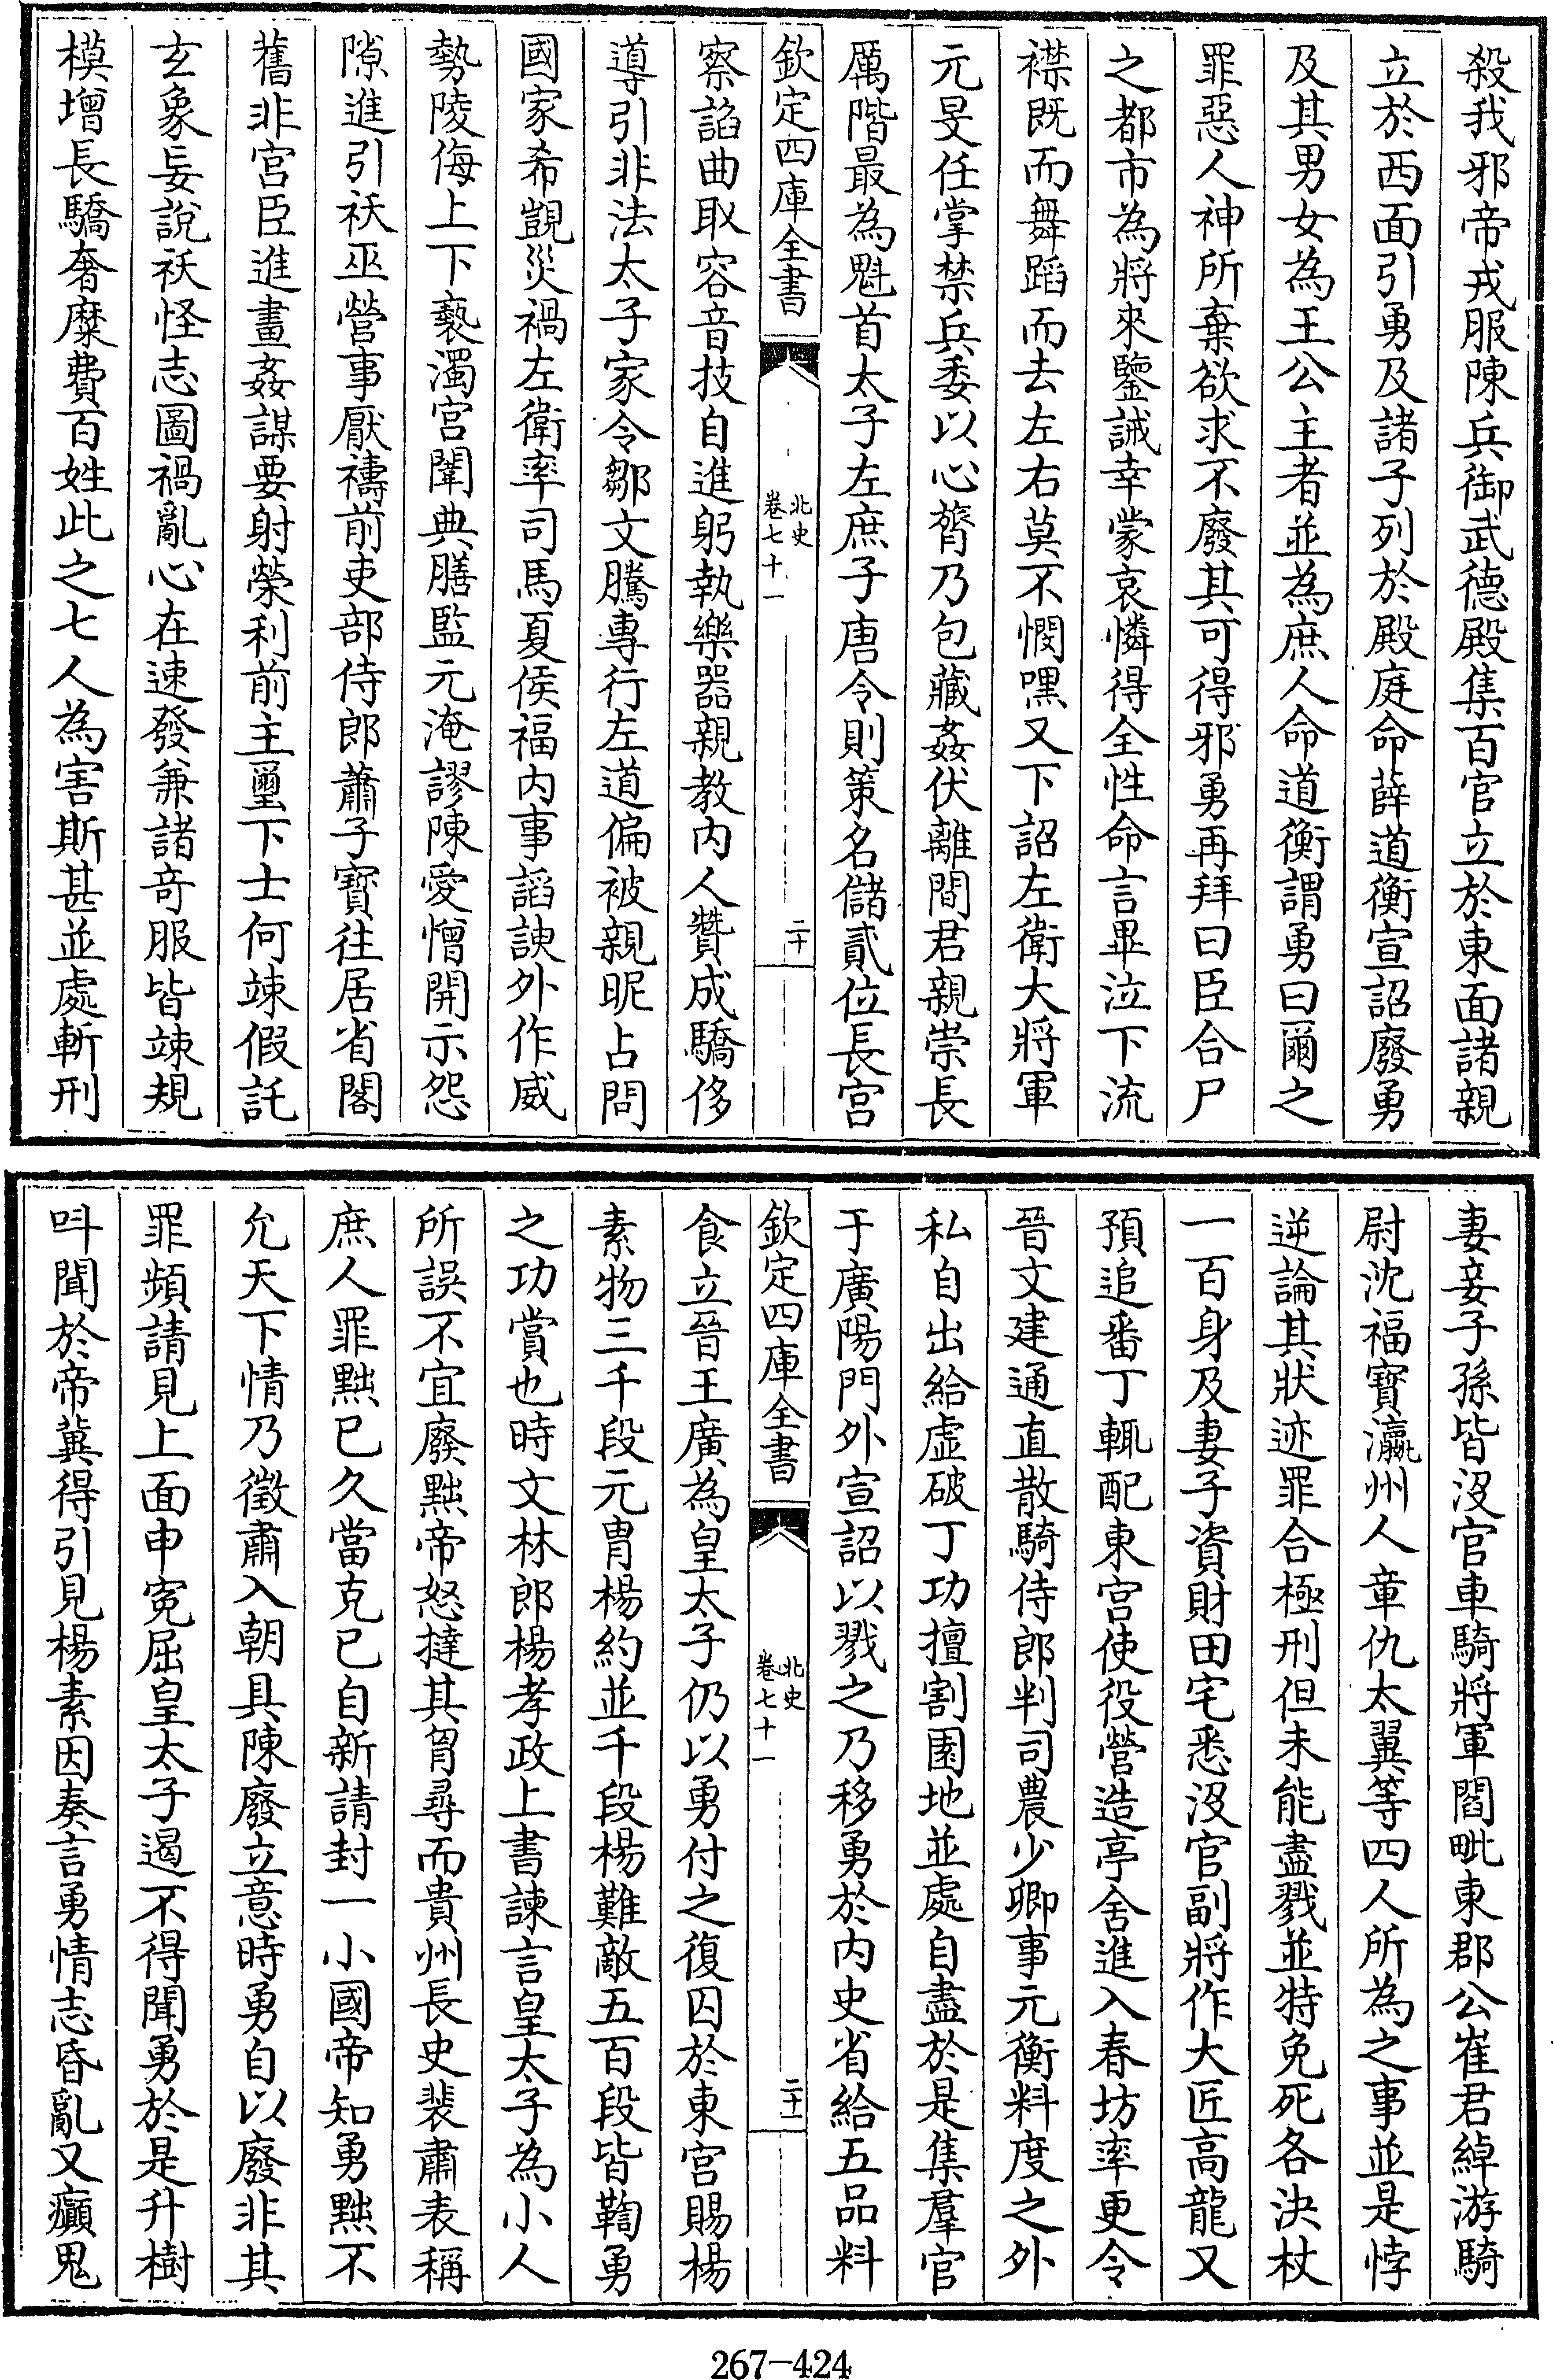 殺我邪帝戎服陳兵御武德殿集百官立於東面諸親
立於西面引勇及諸子列於殿庭命薛道衡宣詔廢勇
及其男女為王公主者並為庶人命道衡謂勇曰爾之
罪惡人神所棄欲求不廢其可得邪勇再拜曰臣合尸
之都市為將來鑒誡幸蒙哀憐得全性命言畢泣下流
襟既而舞蹈而去左右莫不憫嘿又下詔左衛大將軍
元旻任掌禁兵委以心膂乃包藏姦伏離間君親崇長
厲階最為魁首太子左庶子唐令則策名儲貳位長宫
欽定四庫全書
北史
卷七十一
二十
察諂曲取容音技自進躬執樂器親教内人贊成驕侈
導引非法太子家令鄒文騰專行左道偏被親昵占問
國家希覬災禍左衛率司馬夏侯福内事諂諛外作威
勢陵侮上下褻濁宫闈典膳監元淹謬陳愛憎開示怨
隙進引祅巫營事厭禱前吏部侍郎蕭子寳往居省閣
舊非宫臣進畫姦謀要射榮利前主璽下士何竦假託
玄象妄說祅怪志圖禍亂心在速發兼諸奇服皆竦規
模增長驕奢糜費百姓此之七人為害斯甚並處斬刑
妻妾子孫皆没官車騎將軍閻毗東郡公崔君綽游騎
尉沈福寳瀛州人章仇太翼等四人所為之事並是悖
逆論其狀迹罪合極刑但未能盡戮並特免死各決杖
一百身及妻子資財田宅悉没官副將作大匠高龍乂
預追番丁輒配東宫使役營造亭舍進入春坊率更令
晉文建通直散騎侍郎判司農少卿事元衡料度之外
私自出給虚破丁功擅割園地並處自盡於是集羣官
于廣陽門外宣詔以戮之乃移勇於内史省給五品料
欽定四庫全書
北史
卷七十一
二十一
食立晉王廣為皇太子仍以勇付之復囚於東宫賜楊
素物三千段元胄楊約並千段楊難敵五百段皆鞫勇
之功賞也時文林郎楊孝政上書諫言皇太子為小人
所誤不宜廢黜帝怒撻其胷尋而貴州長史裴肅表稱
庶人罪黜已久當克已自新請封一小國帝知勇黜不
允天下情乃徵肅入朝具陳廢立意時勇自以廢非其
罪頻請見上面申寃屈皇太子遏不得聞勇於是升樹
呌聞於帝冀得引見楊素因奏言勇情志昏亂又癲鬼
267-424